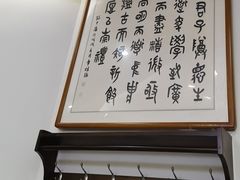 君子尊德性
而道問學致廣
大而盡精微
極高明而道中庸
溫故而知新敦
厚以崇禮